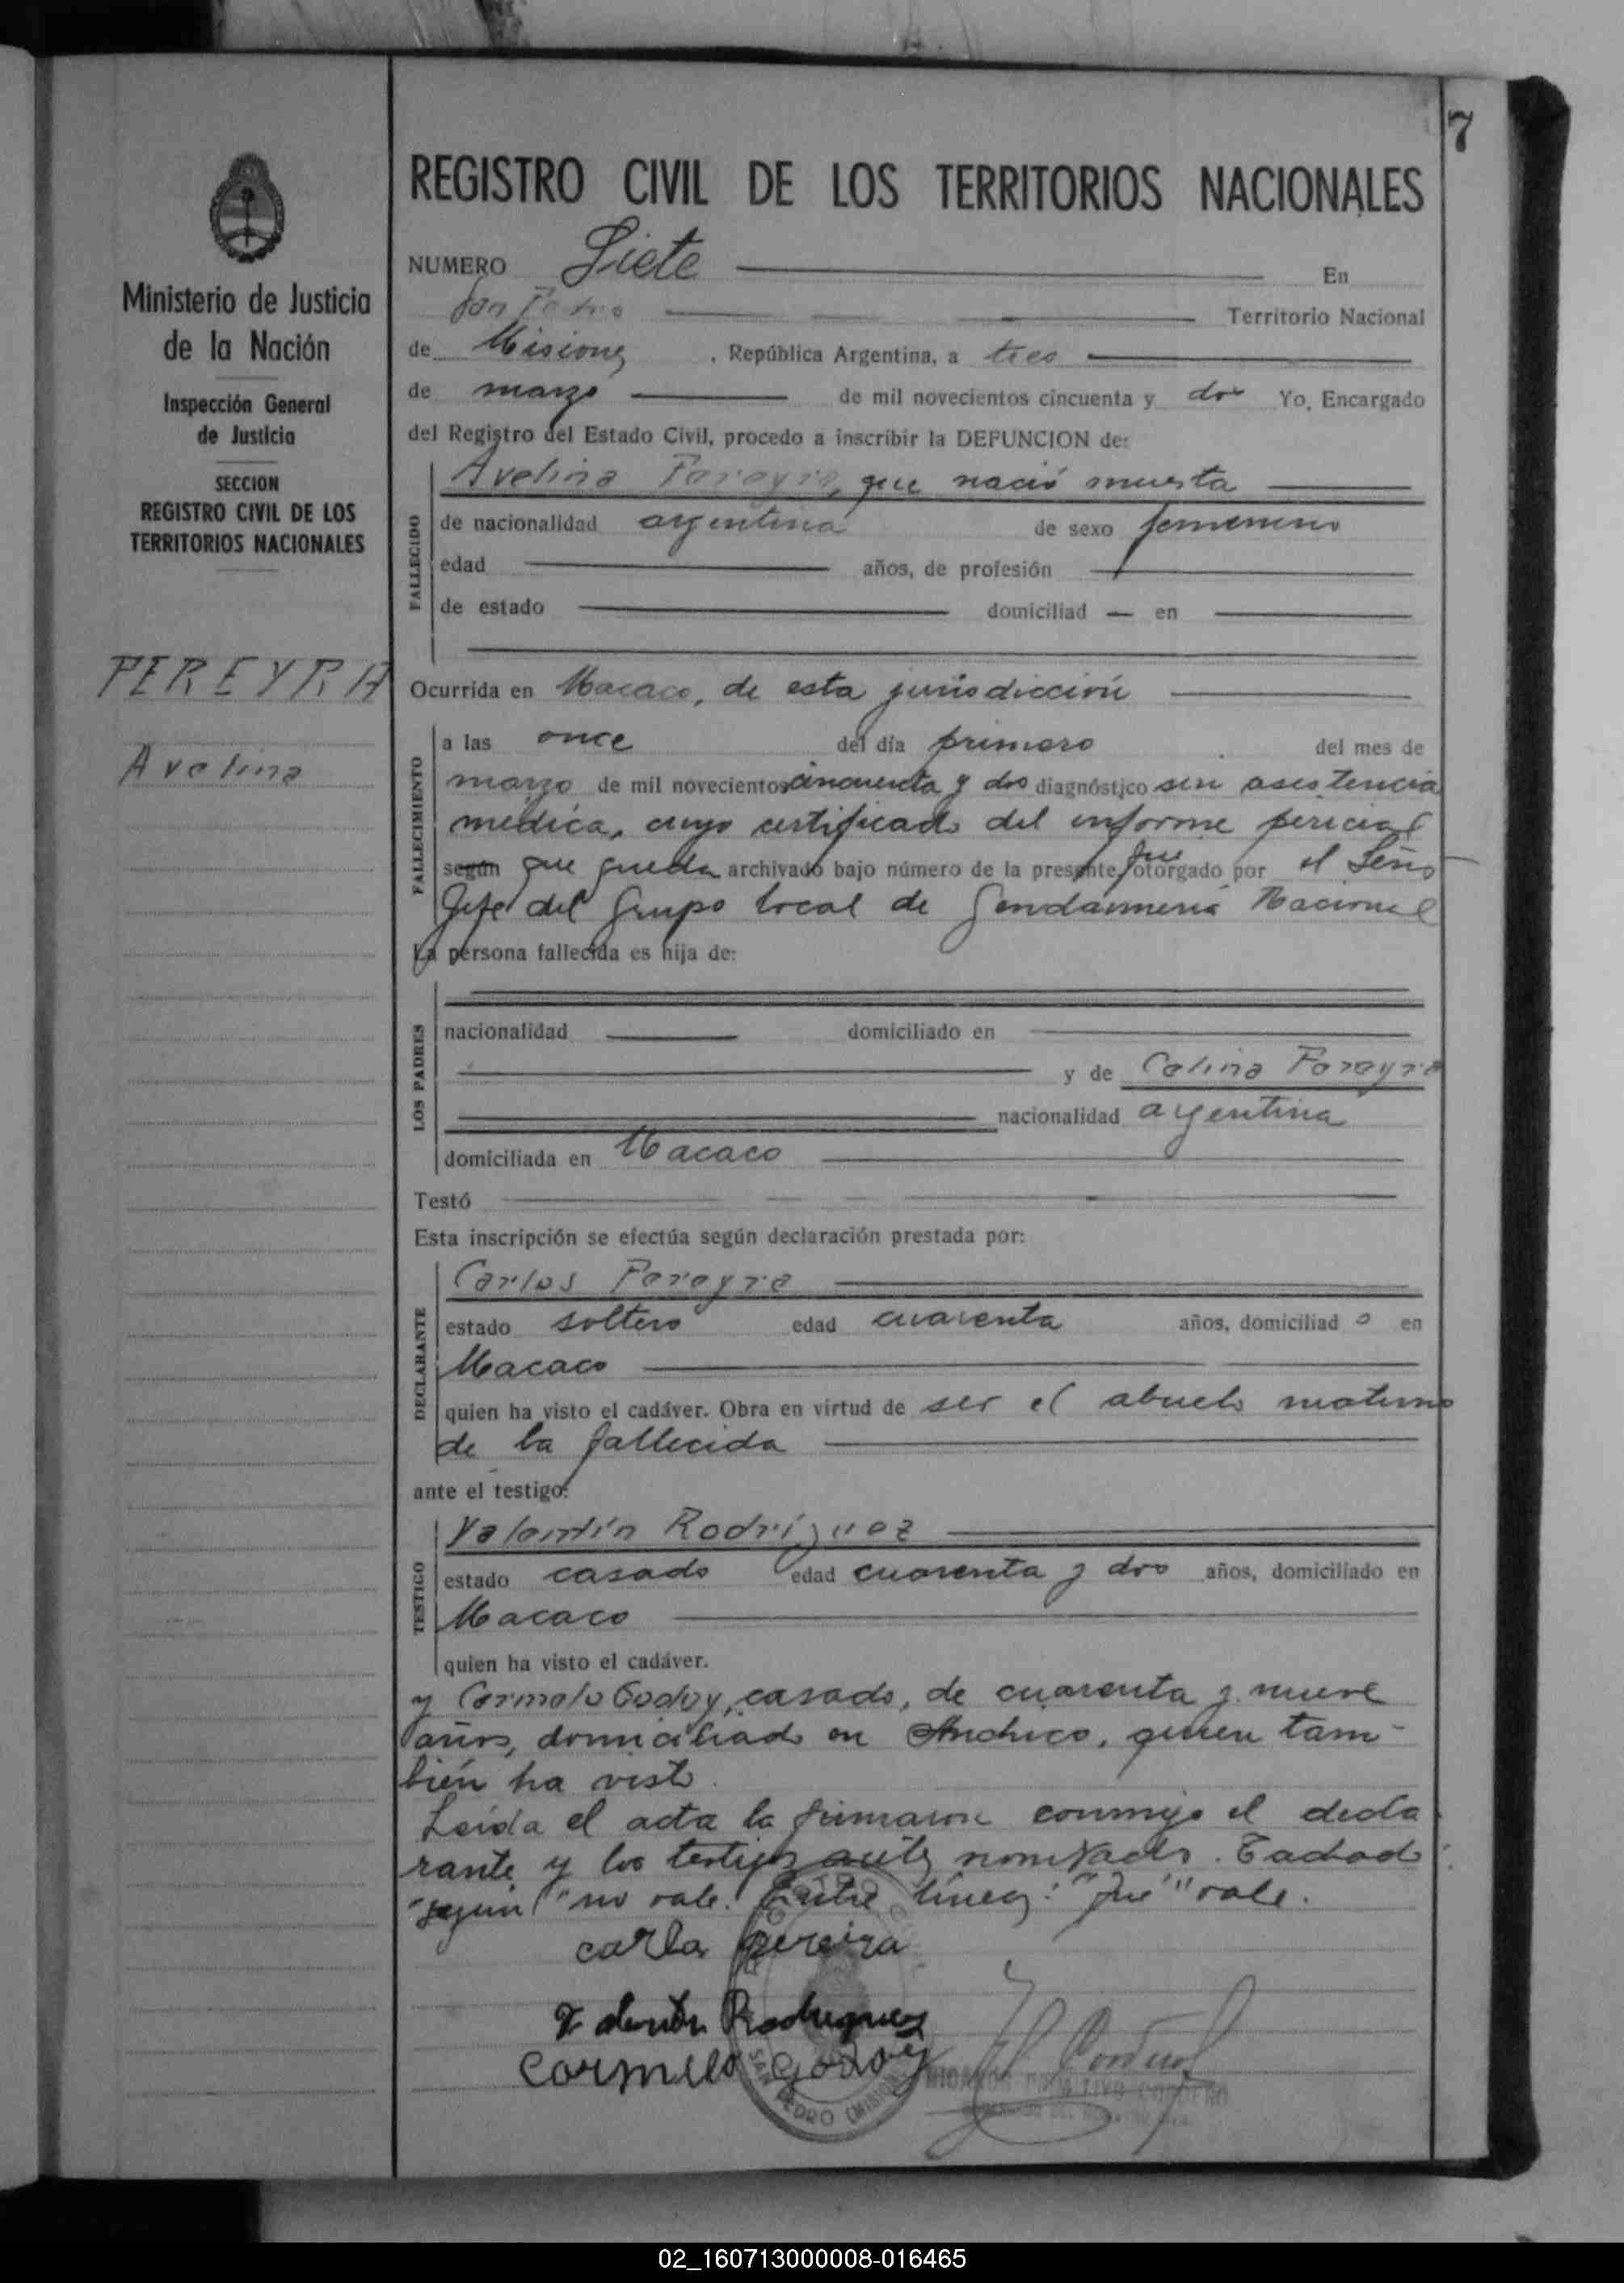 7
Ministerio de Justicia
de la Nación
Inspección General
de Justicia
SECCION
REGISTRO CIVIL DE LOS
TERRITORIOS NACIONALES
PEREYRA
Avelina
REGISTRO CIVIL DE LOS TERRITORIOS NACIONALES
NUMERO Siete En
San Pedro Territorio Nacional
de Misiones, República Argentina, a tres
de marzo de mil novecientos cincuenta y dos Yo, Encargado
del Registro del Estado Civil, procedo a inscribir la DEFUNCION de:
FALLECIDO
Avelina Pereyra, que nació muerta
de nacionalidad argentina de sexo femenino
edad años, de profesión
de estado domiciliad — en
Ocurrida en Macaco, de esta jurisdicción
FALLECIMIENTO
a las once del día primero del mes de
marzo de mil novecientos cincuenta y dos diagnóstico sin asistencia
médica, cuyo certificado del informe pericial
según que queda archivado bajo número de la presente, fue otorgado por el Señor
Jefe del Grupo local de Gendarmeria Nacional
La persona fallecida es hija de:
LOS PADRES
nacionalidad domiciliado en
y de Celina Pereyra
nacionalidad argentina
domiciliada en Macaco
Testó
Esta inscripción se efectúa según declaración prestada por:
DECLARANTE
Carlos Pereyra
estado soltero edad cuarenta años, domiciliad o en
Macaco
quien ha visto el cadáver. Obra en virtud de ser el abuelo materno
de la fallecida
ante el testigo:
TESTIGO
Valentín Rodríguez
estado casado edad cuarenta y dos años, domiciliado en
Macaco
quien ha visto el cadáver.
y Carmelo Godoy, casado, de cuarenta y nueve
años, domiciliado en Anchico, quien tam-
bién ha visto.
Leída el acta la firmaron conmigo el decla
rante y los testigos antes nombrados. Tachado:
"según" no vale. Entre líneas: "fue" vale.
carlos pereira
Valentin Rodriguez
Carmelo Godoy
SAN PEDRO (MISIONES)
02_160713000008-016465